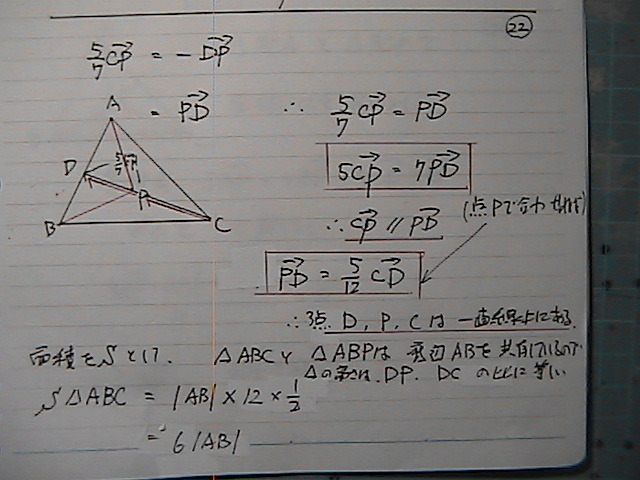 22
5/7 CP→ = − DP→
= PD→ ∴ 5/7 CP→ = PD→
5CP→ = 7PD→
∴ CP→ // PD→ (点Pで合わせれば)
PD→ = 5/12 CD→
∴ 3点 D, P, C は 一直線上にある.
A
D 5/7 CP→
P
B C
面積をSとして. △ABCと △ABPは 底辺ABを共有しているので
△の面積は, DP, DC の比に等しい
S△ABC = |AB| × 12 × 1/2
= 6|AB|